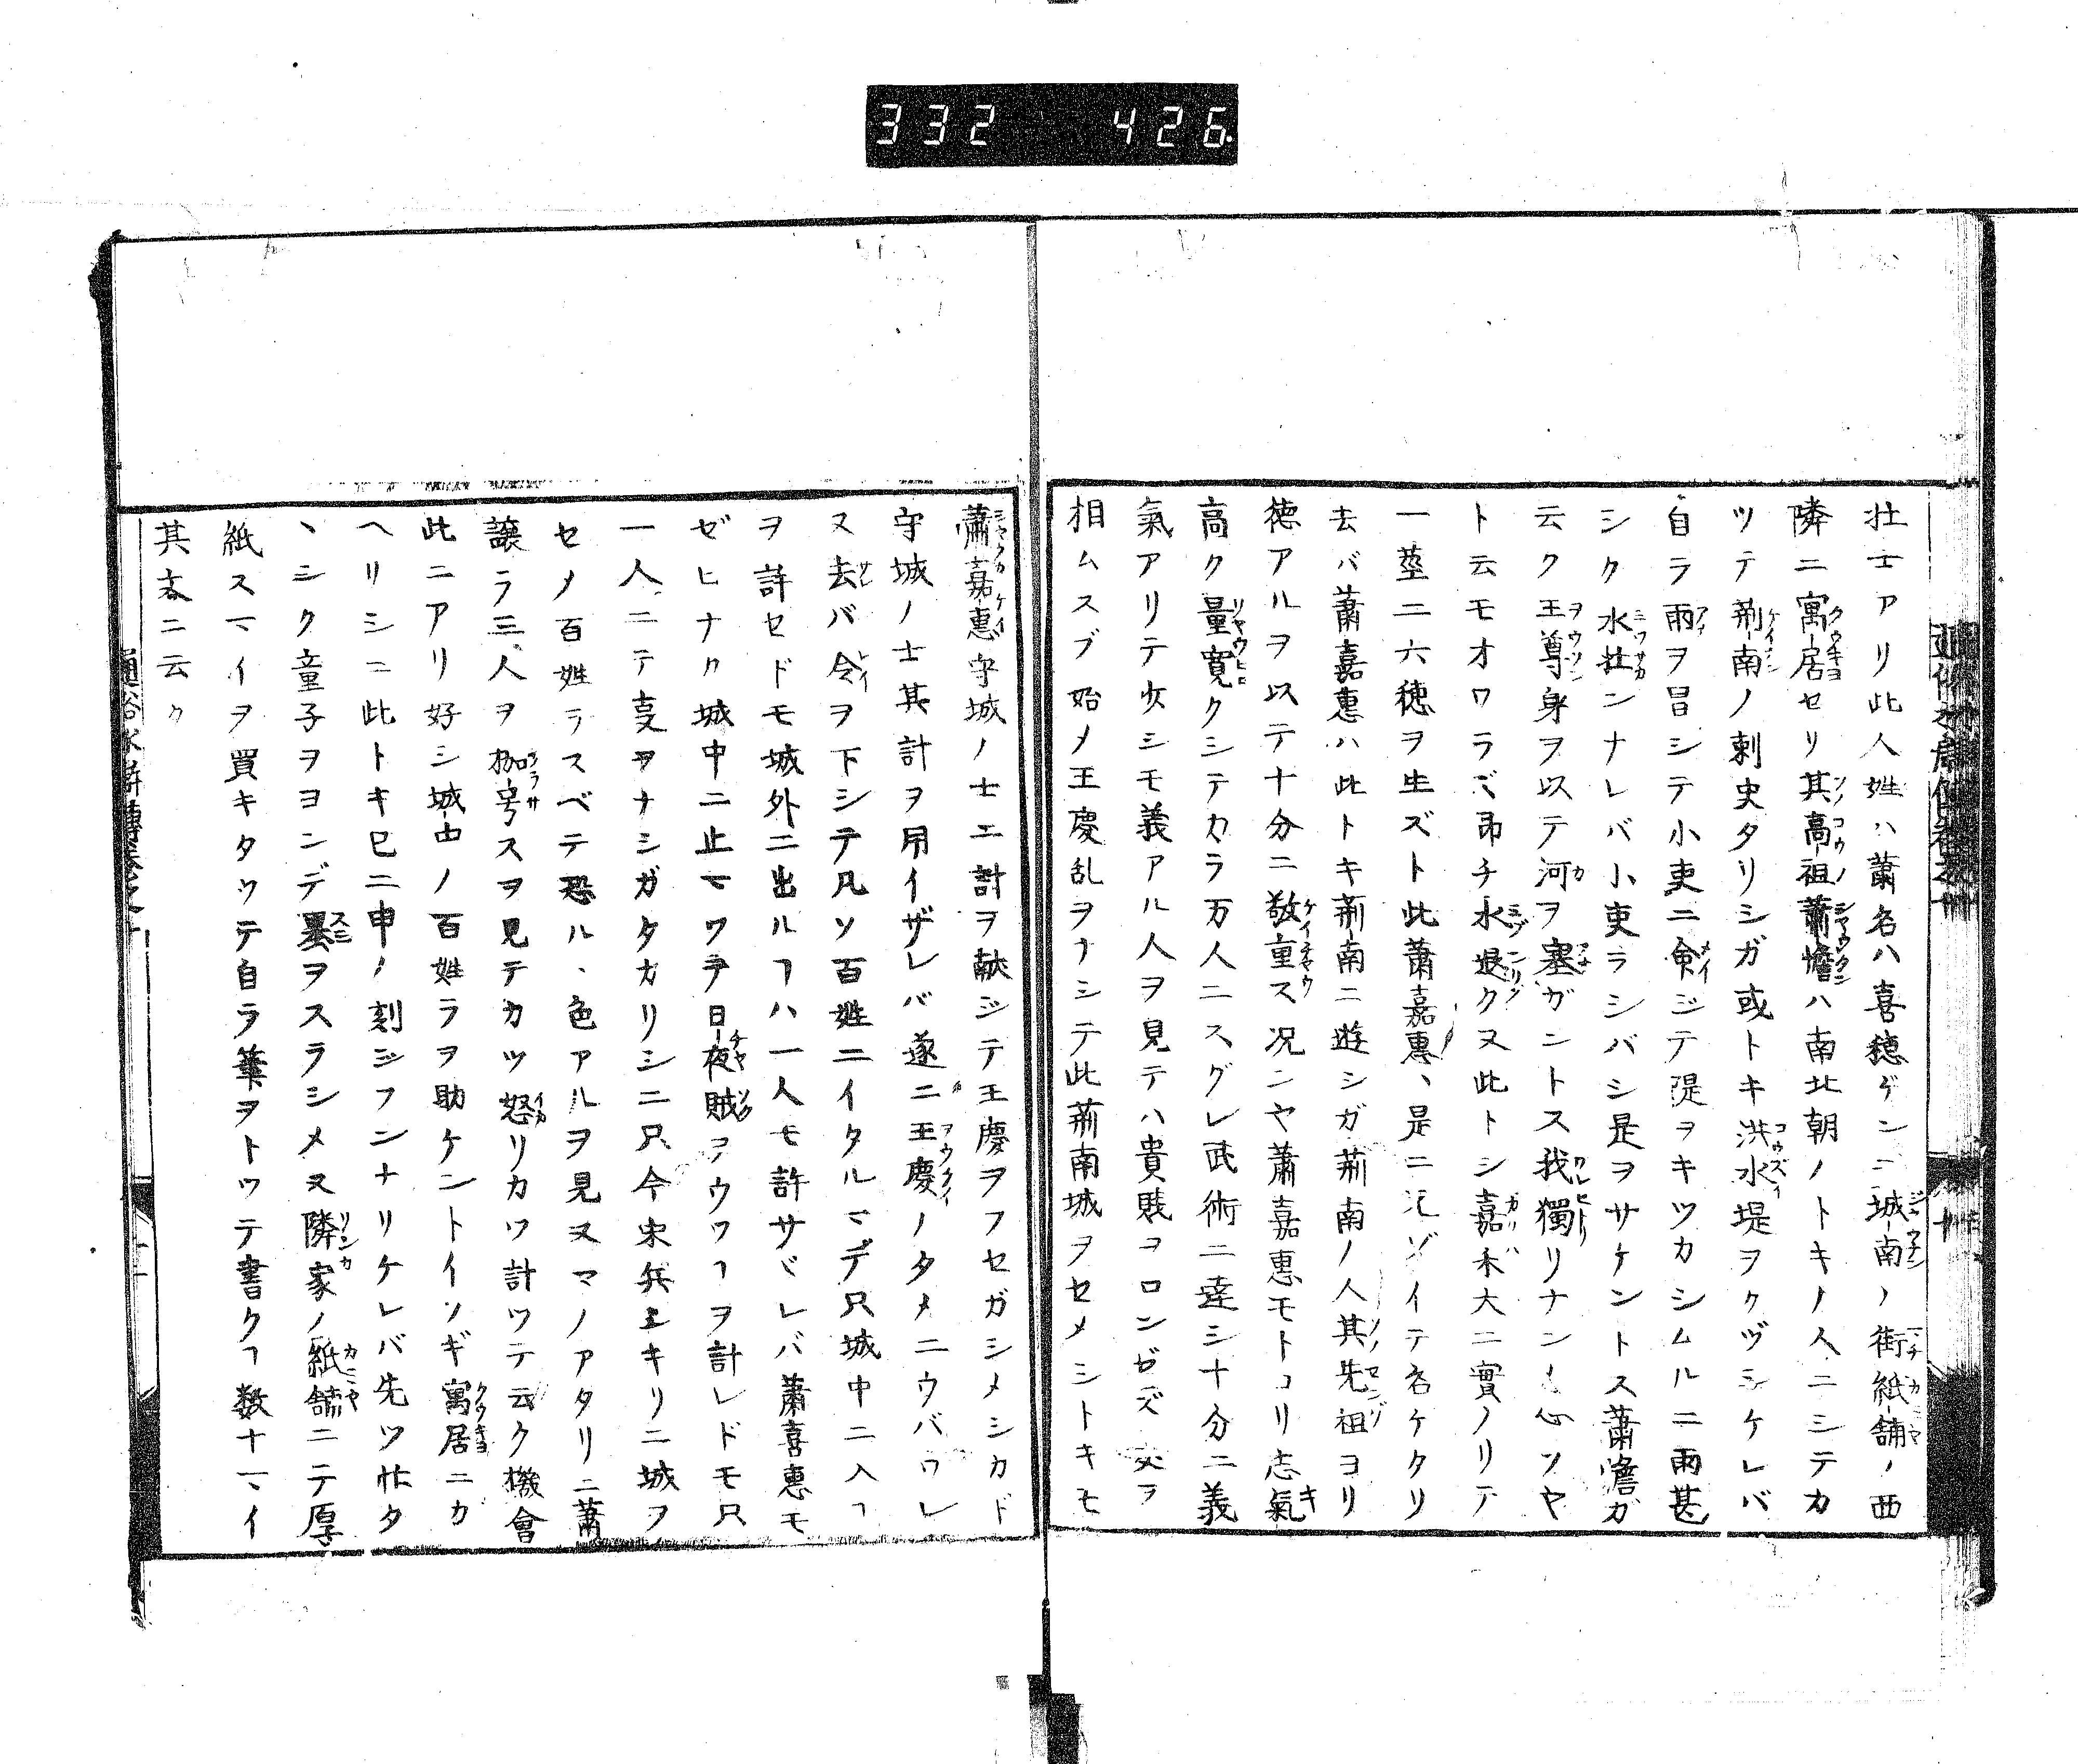 332 426
壮士アリ此人姓ハ蕭名ハ喜穂ゲンニ城南ノ街紙舗ノ西
隣ニ寓居セリ其高祖蕭憺ハ南北朝ノトキノ人ニシテカ
ツテ荊南ノ刺史タリシガ或トキ洪水堤ヲクヅシケレバ
自ラ雨ヲ冒シテ小吏ニ命ジテ堤ヲキツカシムルニ雨甚
シク水壮ンナレバ小吏ラシバシ是ヲサケントス蕭憺ガ
云ク王尊身ヲ以テ河ヲ塞ガントス我獨リナン心ソヤ
ト云モオワラズ即チ水退クヌ此トシ嘉禾大ニ實ノリテ
一莖ニ六穂ヲ生ズト此蕭嘉惠ハ是ニ元ゾイテ名ケタリ
去バ蕭嘉惠ハ此トキ荊南ニ遊シガ荊南ノ人其先祖ヨリ
徳アルヲ以テ十分ニ敬重ス况ンヤ蕭嘉惠モトヨリ志氣
高ク量寛クシテカラ万人ニスグレ武術ニ達シ十分ニ義
氣アリテ少シモ義アル人ヲ見テハ貴賎ヲロンゼズ交ラ
相ムスブ始メ王慶乱ヲナシテ此荊南城ヲセメシトキモ
蕭嘉惠守城ノ士エ計ヲ献ジテ王慶ヲフセガシメシカド
守城ノ士其計ヲ用イザレバ遂ニ王慶ノタメニウバワレ
ヌ去バ令ヲ下シテ凡ソ百姓ニイタルマデ只城中ニ入ヿ
ヲ許セドモ城外ニ出ルヿハ一人モ許サヾレバ蕭喜惠モ
ゼヒナク城中ニ止マワテ日夜賊ヲウツヿヲ計レドモ只
一人ニテ支ヲナシガタカリシニ只今宋兵エキリニ城ヲ
セメ百姓ラスベテ恐ルヽ色アルヲ見ヌマノアタリニ蕭
譲ラ三人ヲ枷号スヲ見テカツ怒リカツ計ツテ云ク機會
此ニアリ好シ城中ノ百姓ラヲ助ケントイソギ寓居ニカ
ヘリシニ此トキ已ニ申ノ刻ジフンナリケレバ先ツ忙タ
ヽシク童子ヲヨンデ墨ヲスラシメヌ隣家ノ紙舗ニテ厚
紙スマイヲ買キタツテ自ラ筆ヲトツテ書クヿ数十マイ
其ニ云ク
通俗水滸傳巻之